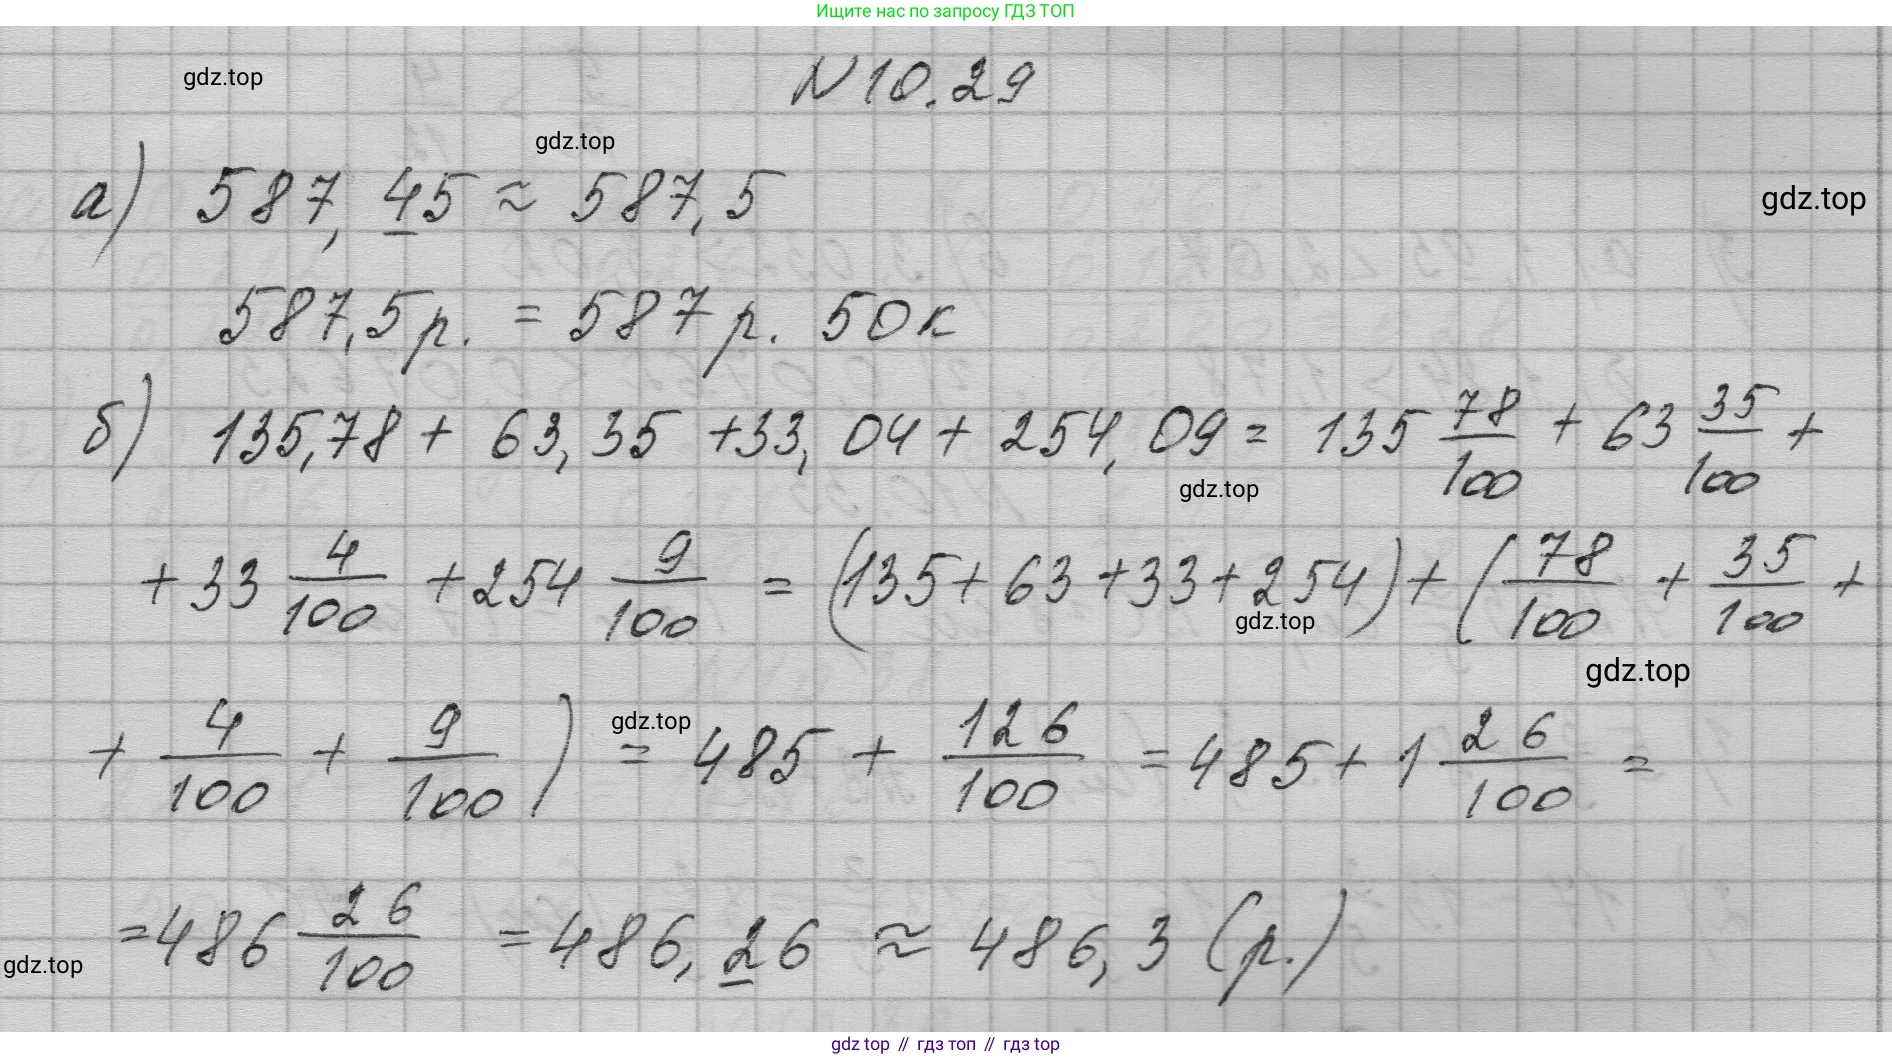 Ищите нас по запросу ГДЗ ТОП
gdz.top
N 10.29
gdz.top
а) 587,45 ≈ 587,5
gdz.top
587,5 р. = 587 р. 50 к
б) 135,78 + 63,35 + 33,04 + 254,09 = 135 78/100 + 63 35/100 +
gdz.top
+ 33 4/100 + 254 9/100 = (135 + 63 + 33 + 254) + (78/100 + 35/100 +
gdz.top
gdz.top
+ 4/100 + 9/100) = 485 + 126/100 = 485 + 1 26/100 =
gdz.top
= 486 26/100 = 486,26 ≈ 486,3 (р.)
gdz.top
gdz top // гдз топ // gdz top